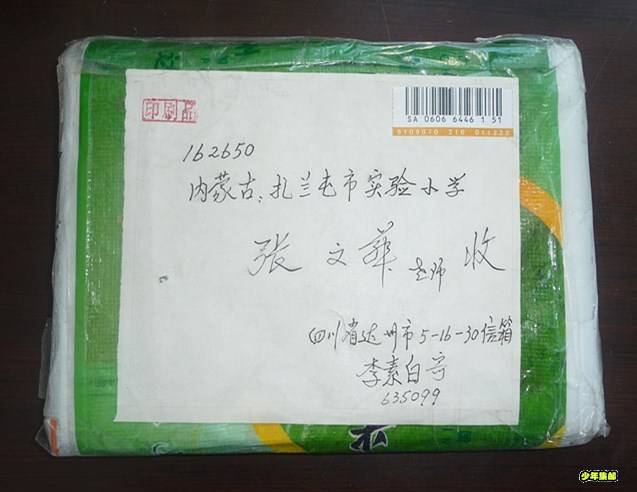 印刷品
SA 0606 6446 1 51
162650
内蒙古，扎兰屯市实验小学
张文华 老师 收
四川省达州市5-16-30信箱
李素白寄
635099
少年集邮